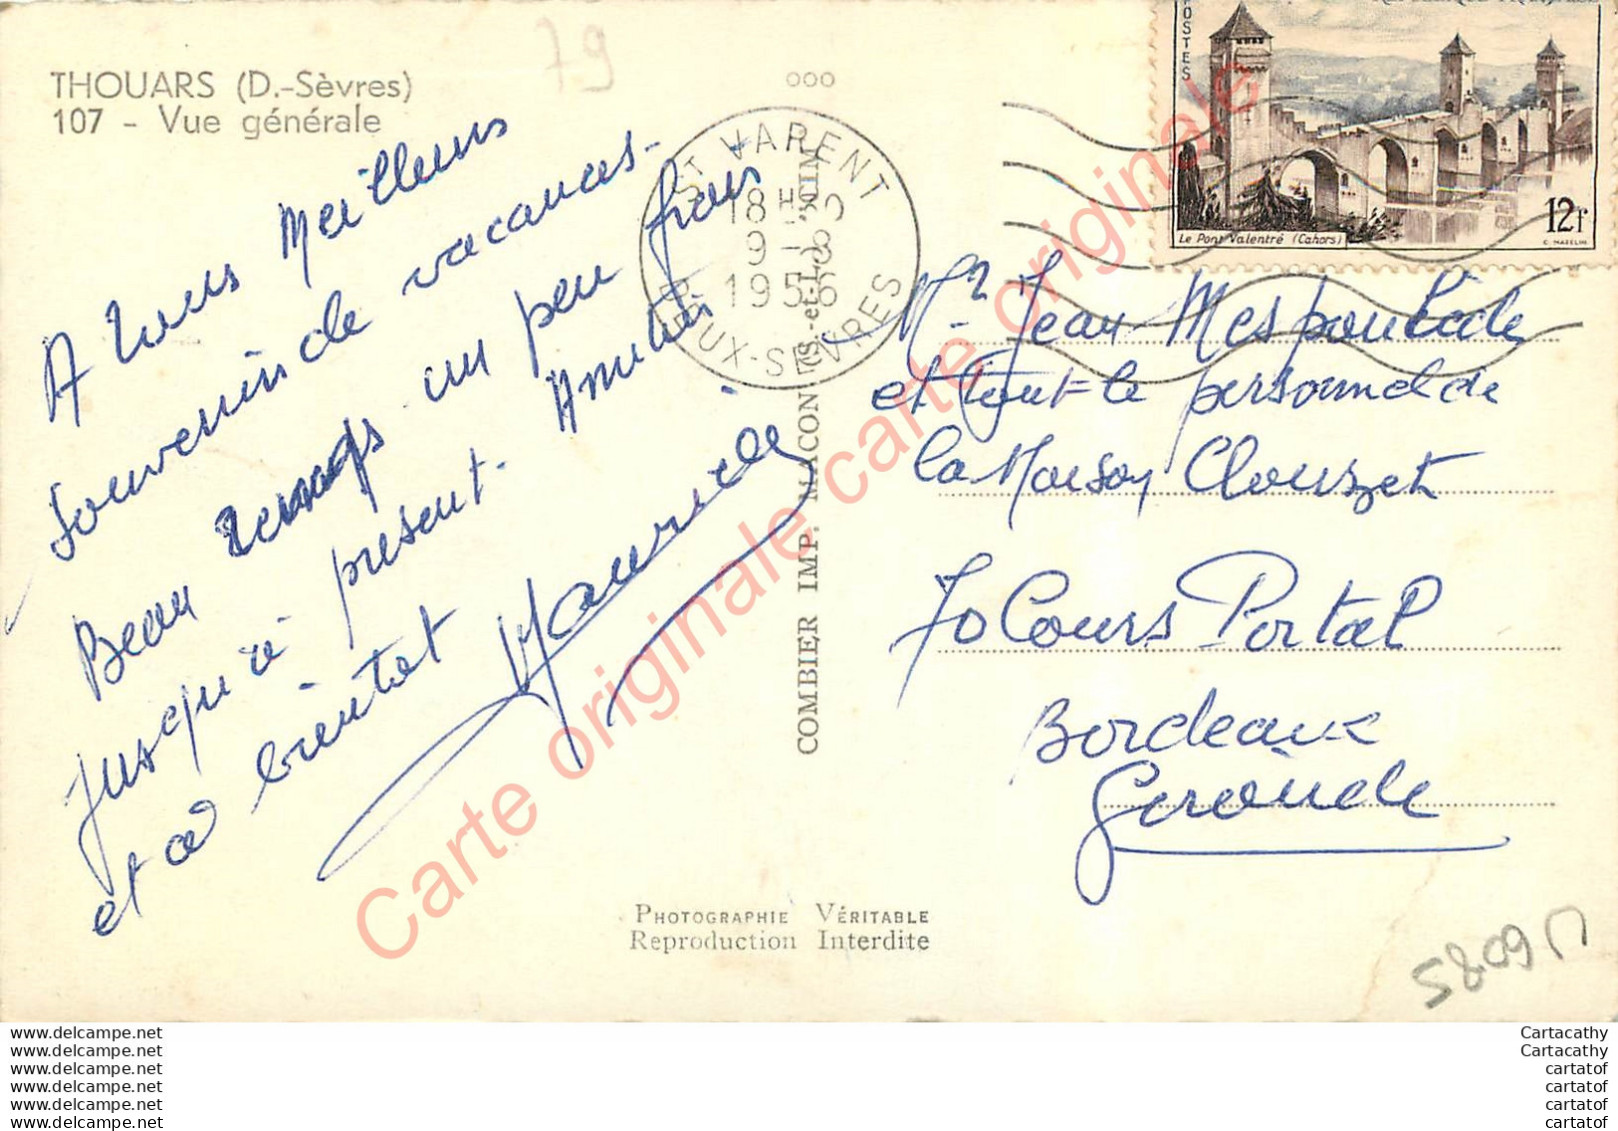 THOUARS (D.-Sèvres)
107 - Vue générale
79
A tous Meilleurs
souvenirs de vacances.
Beau temps un peu frais
jusqu'à présent. Amitiés
et à bientôt
ooo
ST VARENT
18 H 30
9 - 8
1956
DEUX-SEVRES
POSTES
Le Pont Valentré (Cahors)
12f
C. MAZELIN
Mr Jean Mespoulède
et tout le personnel de
la Maison Clouzet
70 Cours Portal
Bordeaux
Gironde
COMBIER IMP. MACON (S.-et-L.) "CIM"
PHOTOGRAPHIE VÉRITABLE
Reproduction Interdite
Carte originale carte originale
www.delcampe.net
www.delcampe.net
www.delcampe.net
www.delcampe.net
www.delcampe.net
www.delcampe.net
Cartacathy
Cartacathy
cartatof
cartatof
cartatof
cartatof